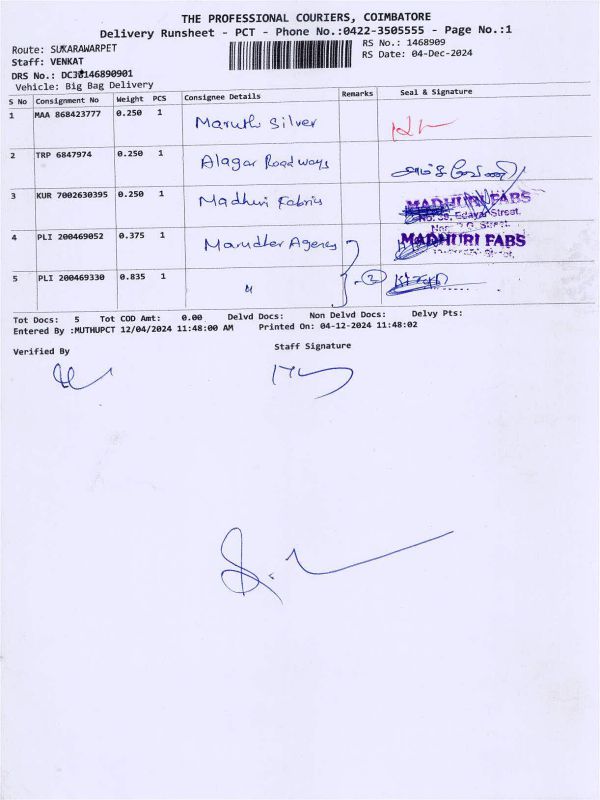 THE PROFESSIONAL COURIERS, COIMBATORE
Delivery Runsheet - PCT - Phone No.:0422-3505555 - Page No.:1
Route: SUKARAWARPET
RS No.: 1468909
Staff: VENKAT
RS Date: 04-Dec-2024
DRS No.: DC30146890901
Vehicle: Big Bag Delivery
S No Consignment No Weight PCS Consignee Details Remarks Seal & Signature
1 MAA 868423777 0.250 1 Maruthi Silver
2 TRP 6847974 0.250 1 Alagar Roadways
3 KUR 7002630395 0.250 1 Madhuri Fabrics MADHURI FABS
Edayar Street,
4 PLI 200469052 0.375 1 Marudter Agencs MADHURI FABS
5 PLI 200469330 0.835 1 " 2
Tot Docs: 5 Tot COD Amt: 0.00 Delvd Docs: Non Delvd Docs: Delvy Pts:
Entered By :MUTHUPCT 12/04/2024 11:48:00 AM Printed On: 04-12-2024 11:48:02
Verified By
Staff Signature